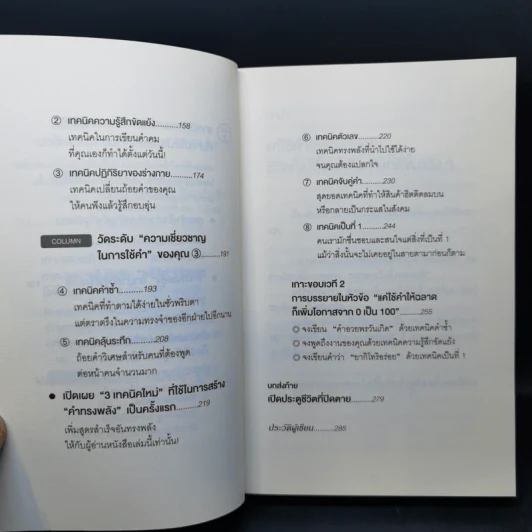 ② เทคนิคความรู้สึกขัดแย้ง..........158
เทคนิคในการเขียนคำคม
ที่คุณเองก็ทำได้ตั้งแต่วันนี้!
③ เทคนิคปฏิกิริยาของร่างกาย..........174
เทคนิคเปลี่ยนถ้อยคำของคุณ
ให้คนฟังแล้วรู้สึกอบอุ่น
COLUMN วัดระดับ “ความเชี่ยวชาญ
ในการใช้คำ” ของคุณ ③..........191
④ เทคนิคคำซ้ำ..........193
เทคนิคที่ทำตามได้ง่ายในชั่วพริบตา
แต่ตราตรึงในความทรงจำของอีกฝ่ายไปอีกนาน
⑤ เทคนิคลุ้นระทึก..........208
ถ้อยคำวิเศษสำหรับคนที่ต้องพูด
ต่อหน้าคนจำนวนมาก
● เปิดเผย “3 เทคนิคใหม่” ที่ใช้ในการสร้าง
“คำทรงพลัง” เป็นครั้งแรก..........219
เพิ่มสูตรสำเร็จอันทรงพลัง
ให้กับผู้อ่านหนังสือเล่มนี้เท่านั้น!
⑥ เทคนิคตัวเลข..........220
เทคนิคทรงพลังที่นำไปใช้ได้ง่าย
จนคุณต้องแปลกใจ
⑦ เทคนิคจับคู่คำ..........230
สุดยอดเทคนิคที่ทำให้สินค้าฮิตติดลมบน
หรือกลายเป็นกระแสในสังคม
⑧ เทคนิคเป็นที่ 1..........244
คนเรามักชื่นชอบและสนใจแต่สิ่งที่เป็นที่ 1
แม้ว่าสิ่งนั้นจะไม่เคยอยู่ในสายตามาก่อนก็ตาม
เกาะขอบเวที 2
การบรรยายในหัวข้อ “แค่ใช้คำให้ฉลาด
ก็เพิ่มโอกาสจาก 0 เป็น 100”..........255
จงเขียน “คำอวยพรวันเกิด” ด้วยเทคนิคคำซ้ำ
จงพูดถึงงานของคุณด้วยเทคนิคความรู้สึกขัดแย้ง
จงเขียนคำว่า “ยากิโทริอร่อย” ด้วยเทคนิคเป็นที่ 1
บทส่งท้าย
เปิดประตูชีวิตที่ปิดตาย..........279
ประวัติผู้เขียน..........285